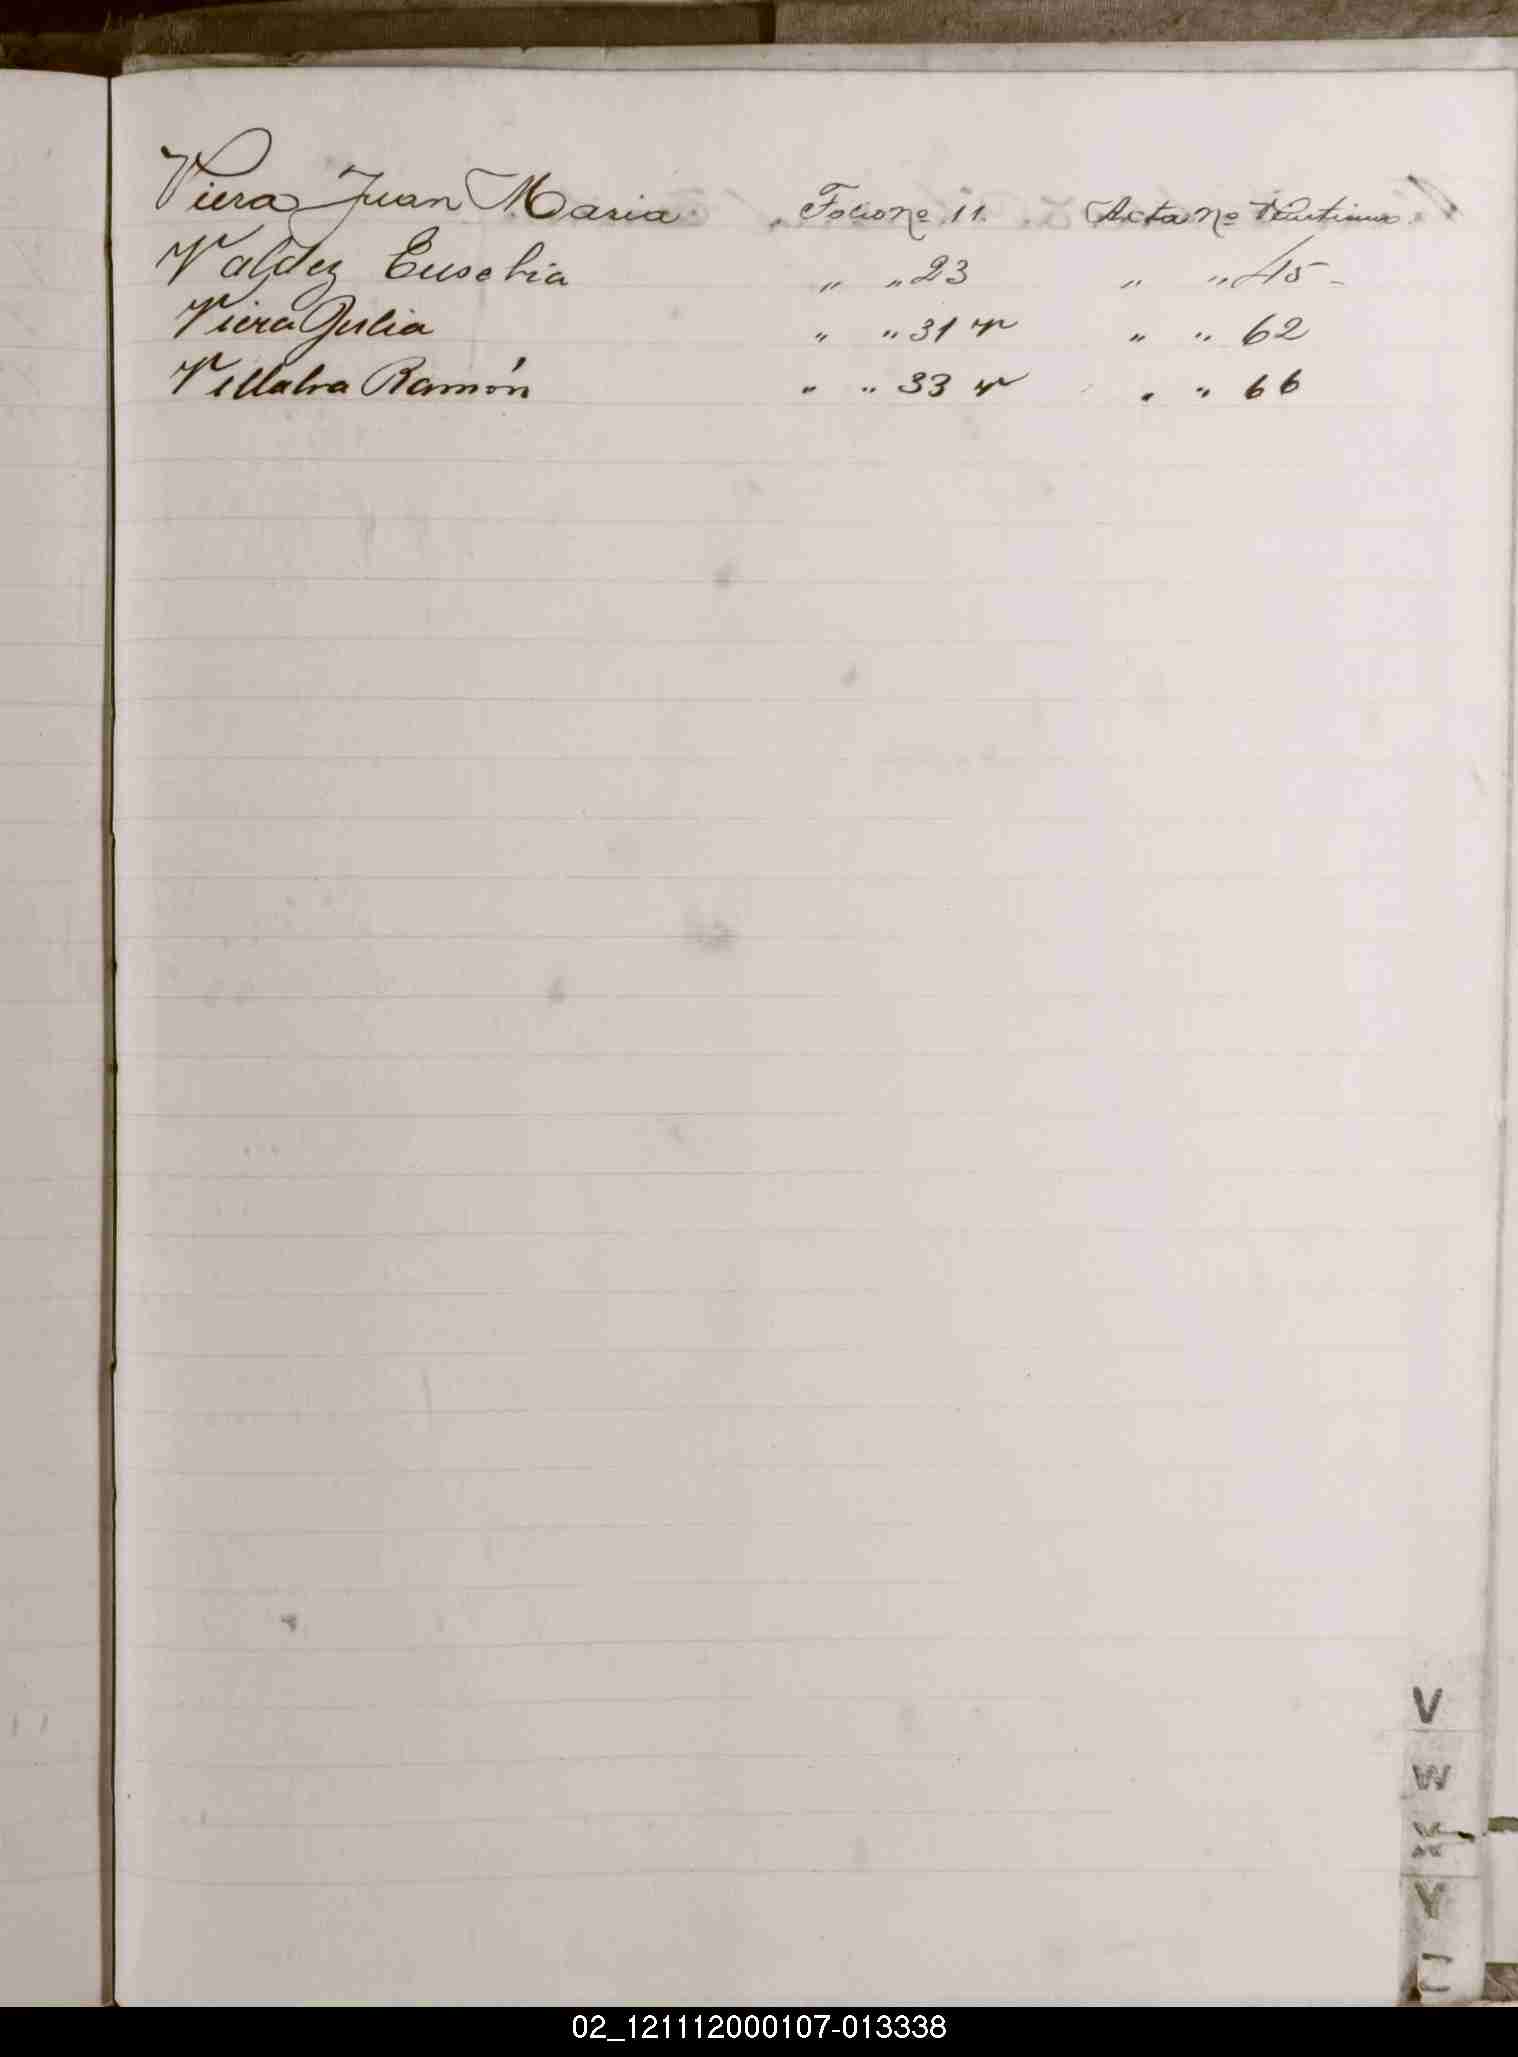 Viera Juan Maria Folio No 11. Acta No Veintiuno
Valdez Eusebia " " 23 " " 45 -
Viera Julia " " 31 v " " 62
Villalva Ramón " " 33 v " " 66
V
W
X
Y
Z
02_121112000107-013338